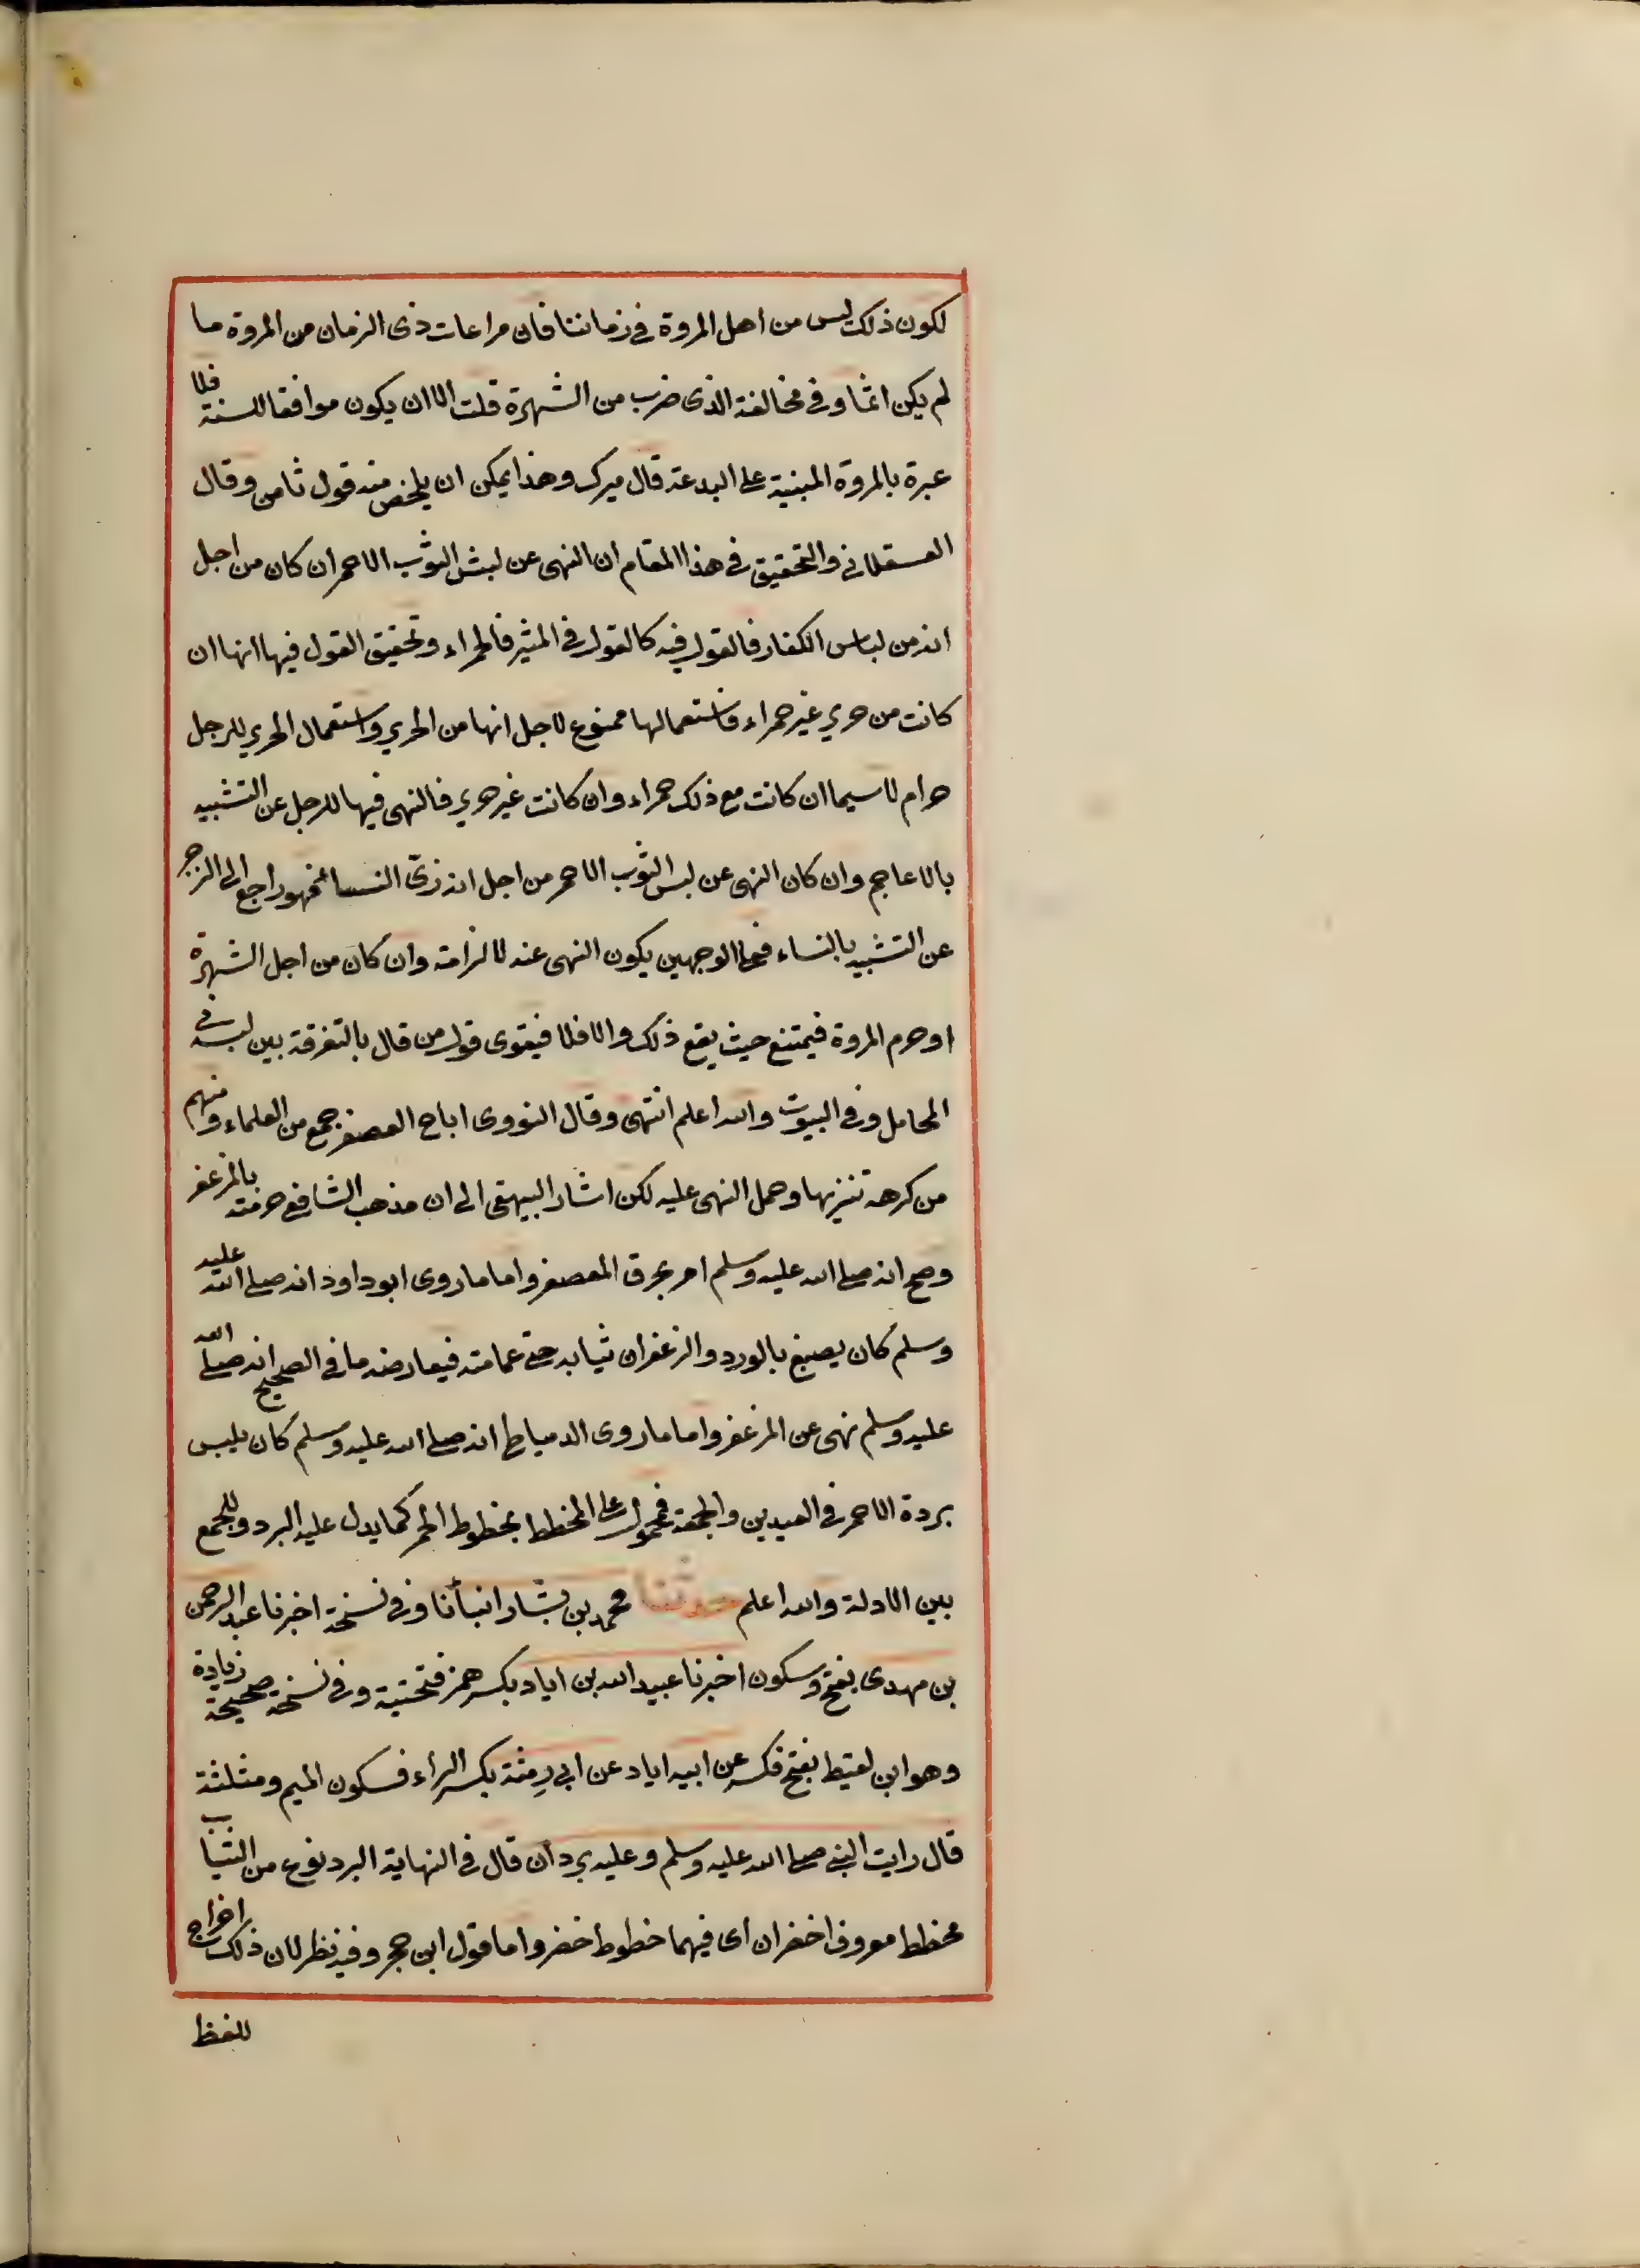 لكون ذلك ليس من اهل المروة فى زماننا فان مراعات ذى الزمان من المروة ما
لم يكن اثما وفى مخالفة الذى ضرب من الشهرة قلت الا ان يكون موافقا للسنة فلا
عبرة بالمروة المبنية على البدعة قال ميرك وهذا يمكن ان يلخص منه قول ثامن وقال
العسقلانى والتحقيق فى هذا المقام ان النهى عن لبس الثوب الاحمر ان كان من اجل
انه من لباس الكفار فالقول فيه كالقول فى المثير فالحمراء وتحقيق القول فيها انها ان
كانت من حرير غير حمراء فاستعمالها ممنوع لاجل انها من الحرير واستعمال الحرير للرجل
حرام لا سيما ان كانت مع ذلك حمراء وان كانت غير حرير فالنهى فيها للرجل عن التشبيه
بالاعاجم وان كان النهى عن لبس الثوب الاحمر من اجل انه زىّ النساء فهو راجع الى الزجر
عن التشبيه بالنساء فعلى الوجهين يكون النهى عنه لا لزامته وان كان من اجل الشهرة
او حرم المروة فيمتنع حيث يقع ذلك والا فلا فيقوى قول من قال بالتفرقة بين لبسه فى
المحامل وفى البيوت والله اعلم انتهى وقال النووى اباح المعصفر جمع من العلماء ومنهم
من كرهه تنزيها وحمل النهى عليه لكن اشار البيهقى الى ان مذهب الشافعى حرمته بالمزعفر
وصح انه صلى الله عليه وسلم امر بحرق المعصفر واما ما روى ابو داود انه صلى الله عليه
وسلم كان يصبغ بالورد والزعفران ثيابه حتى عمامته فيعارضه ما فى الصحيح انه صلى الله
عليه وسلم نهى عن المزعفر واما ما روى الدمياطى انه صلى الله عليه وسلم كان يلبس
بردة الاحمر فى العيدين والجمعة فمحمول على المخطط بخطوط الحمر كما يدل عليه البرد وللجمع
بين الادلة والله اعلم حدثنا محمد بن بشار انبأنا وفى نسخة اخبرنا عبد الرحمن
بن مهدى بفتح وسكون اخبرنا عبيد الله بن اياد بكسر همز فتحتية وفى نسخة صحيحة زيادة
وهو ابن لقيط بفتح فكسر عن ابيه اياد عن ابى رِمثة بكسر الراء فسكون الميم ومثلثة
قال رايت النبى صلى الله عليه وسلم وعليه بردان قال فى النهاية البرد نوع من الثياب
مخطط معروف اخضران اى فيهما خطوط خضر واما قول ابن حجر وفيه نظر لان ذلك اخراج
للفظ